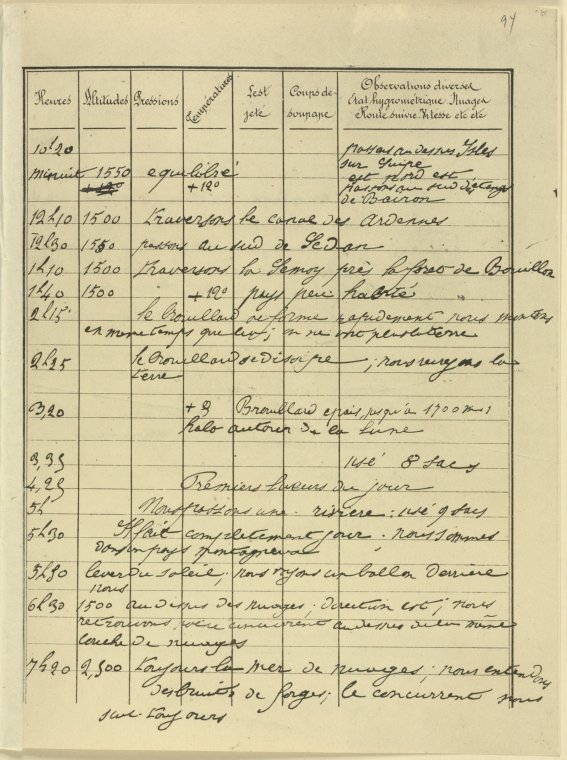 97
Heures Altitudes Pressions Températures Lest jeté Coups de soupape Observations diverses Etat hygrométrique Nuages Route suivie. Vitesse etc etc
10h20 passons au dessus Isles
sur Suipe
minuit 1550 equilibré est nord est
+12° +12° passons au sud d'étangs
de Bairon
12h10 1500 traversons le canal des Ardennes
12h30 1550 passons au sud de Sedan
1h10 1500 traversons la Semoy près la foret de Bouillon
1h40 1500 +12° pays peu habité
2h15 le brouillard se forme rapidement nous montons
en meme temps que lui; on ne voit plus la terre
2h25 le brouillard se dissipe ; nous revoyons la
terre
3,20 +9 Brouillard epais jusqu'à 1700 m;
halo autour de la Lune
3,35 usé 8 sacs
4,25 Premiers lueurs du jour
5h Nous passons une rivière: usé 9 sacs
5h30 Il fait completement jour. nous sommes
dans un pays montagneux
5h50 lever du soleil; nous voyons un ballon derrière
nous
6h30 1500 au dessus des nuages; direction est; nous
retrouvons, concurrent au dessus de la même
couche de nuages
7h20 2,500 toujours la mer de nuages; nous entendons
des bruits de forges; le concurrent nous
suit toujours